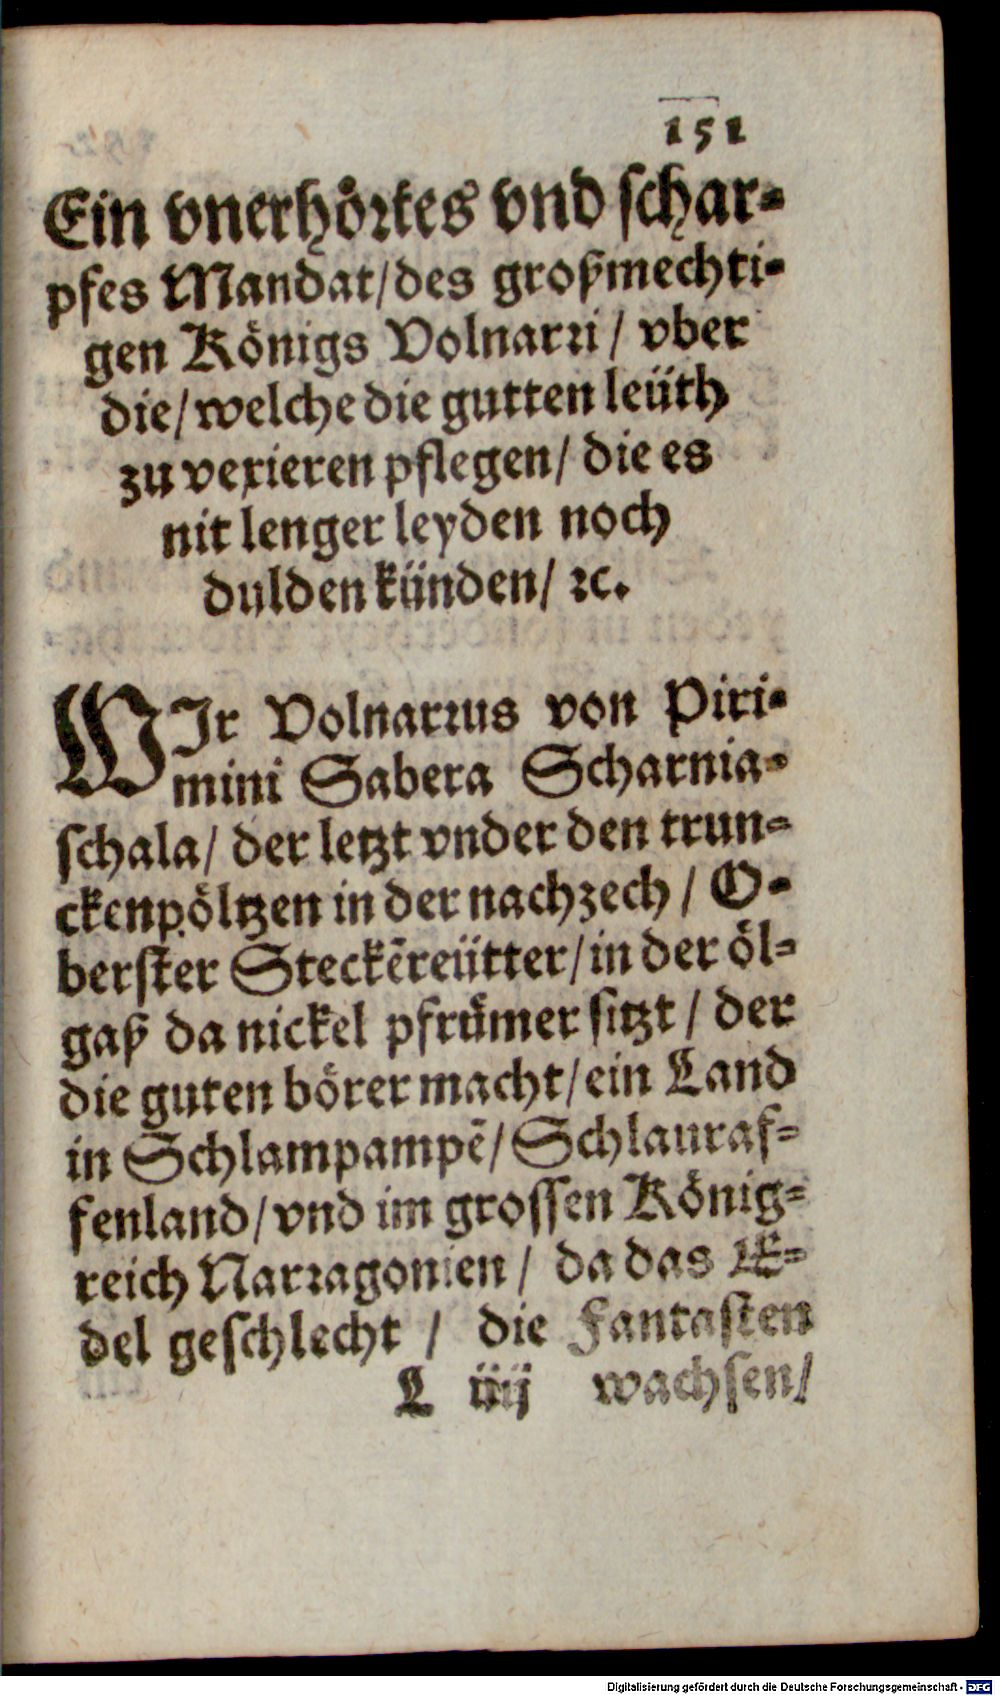 151
Ein vnerhörtes vnd schar-
pfes Mandat/des großmechti-
gen Königs Volnarri/ vber
die/welche die gutten leüth
zu vexieren pflegen/ die es
nit lenger leyden noch
dulden künden/ ꝛc.
WIr Volnarrus von Piri-
mini Sabera Scharnia-
schala/ der letzt vnder den trun-
ckenpöltzen in der nachzech/ O-
berster Steckẽreütter/in der öl-
gaß da nickel pfrümer sitzt/ der
die guten börer macht/ein Land
in Schlampampẽ/Schlauraf-
fenland/vnd im grossen König-
reich Narragonien/ da das E-
del geschlecht/ die Fantasten
L iiij wachsen/
Digitalisierung gefördert durch die Deutsche Forschungsgemeinschaft - DFG